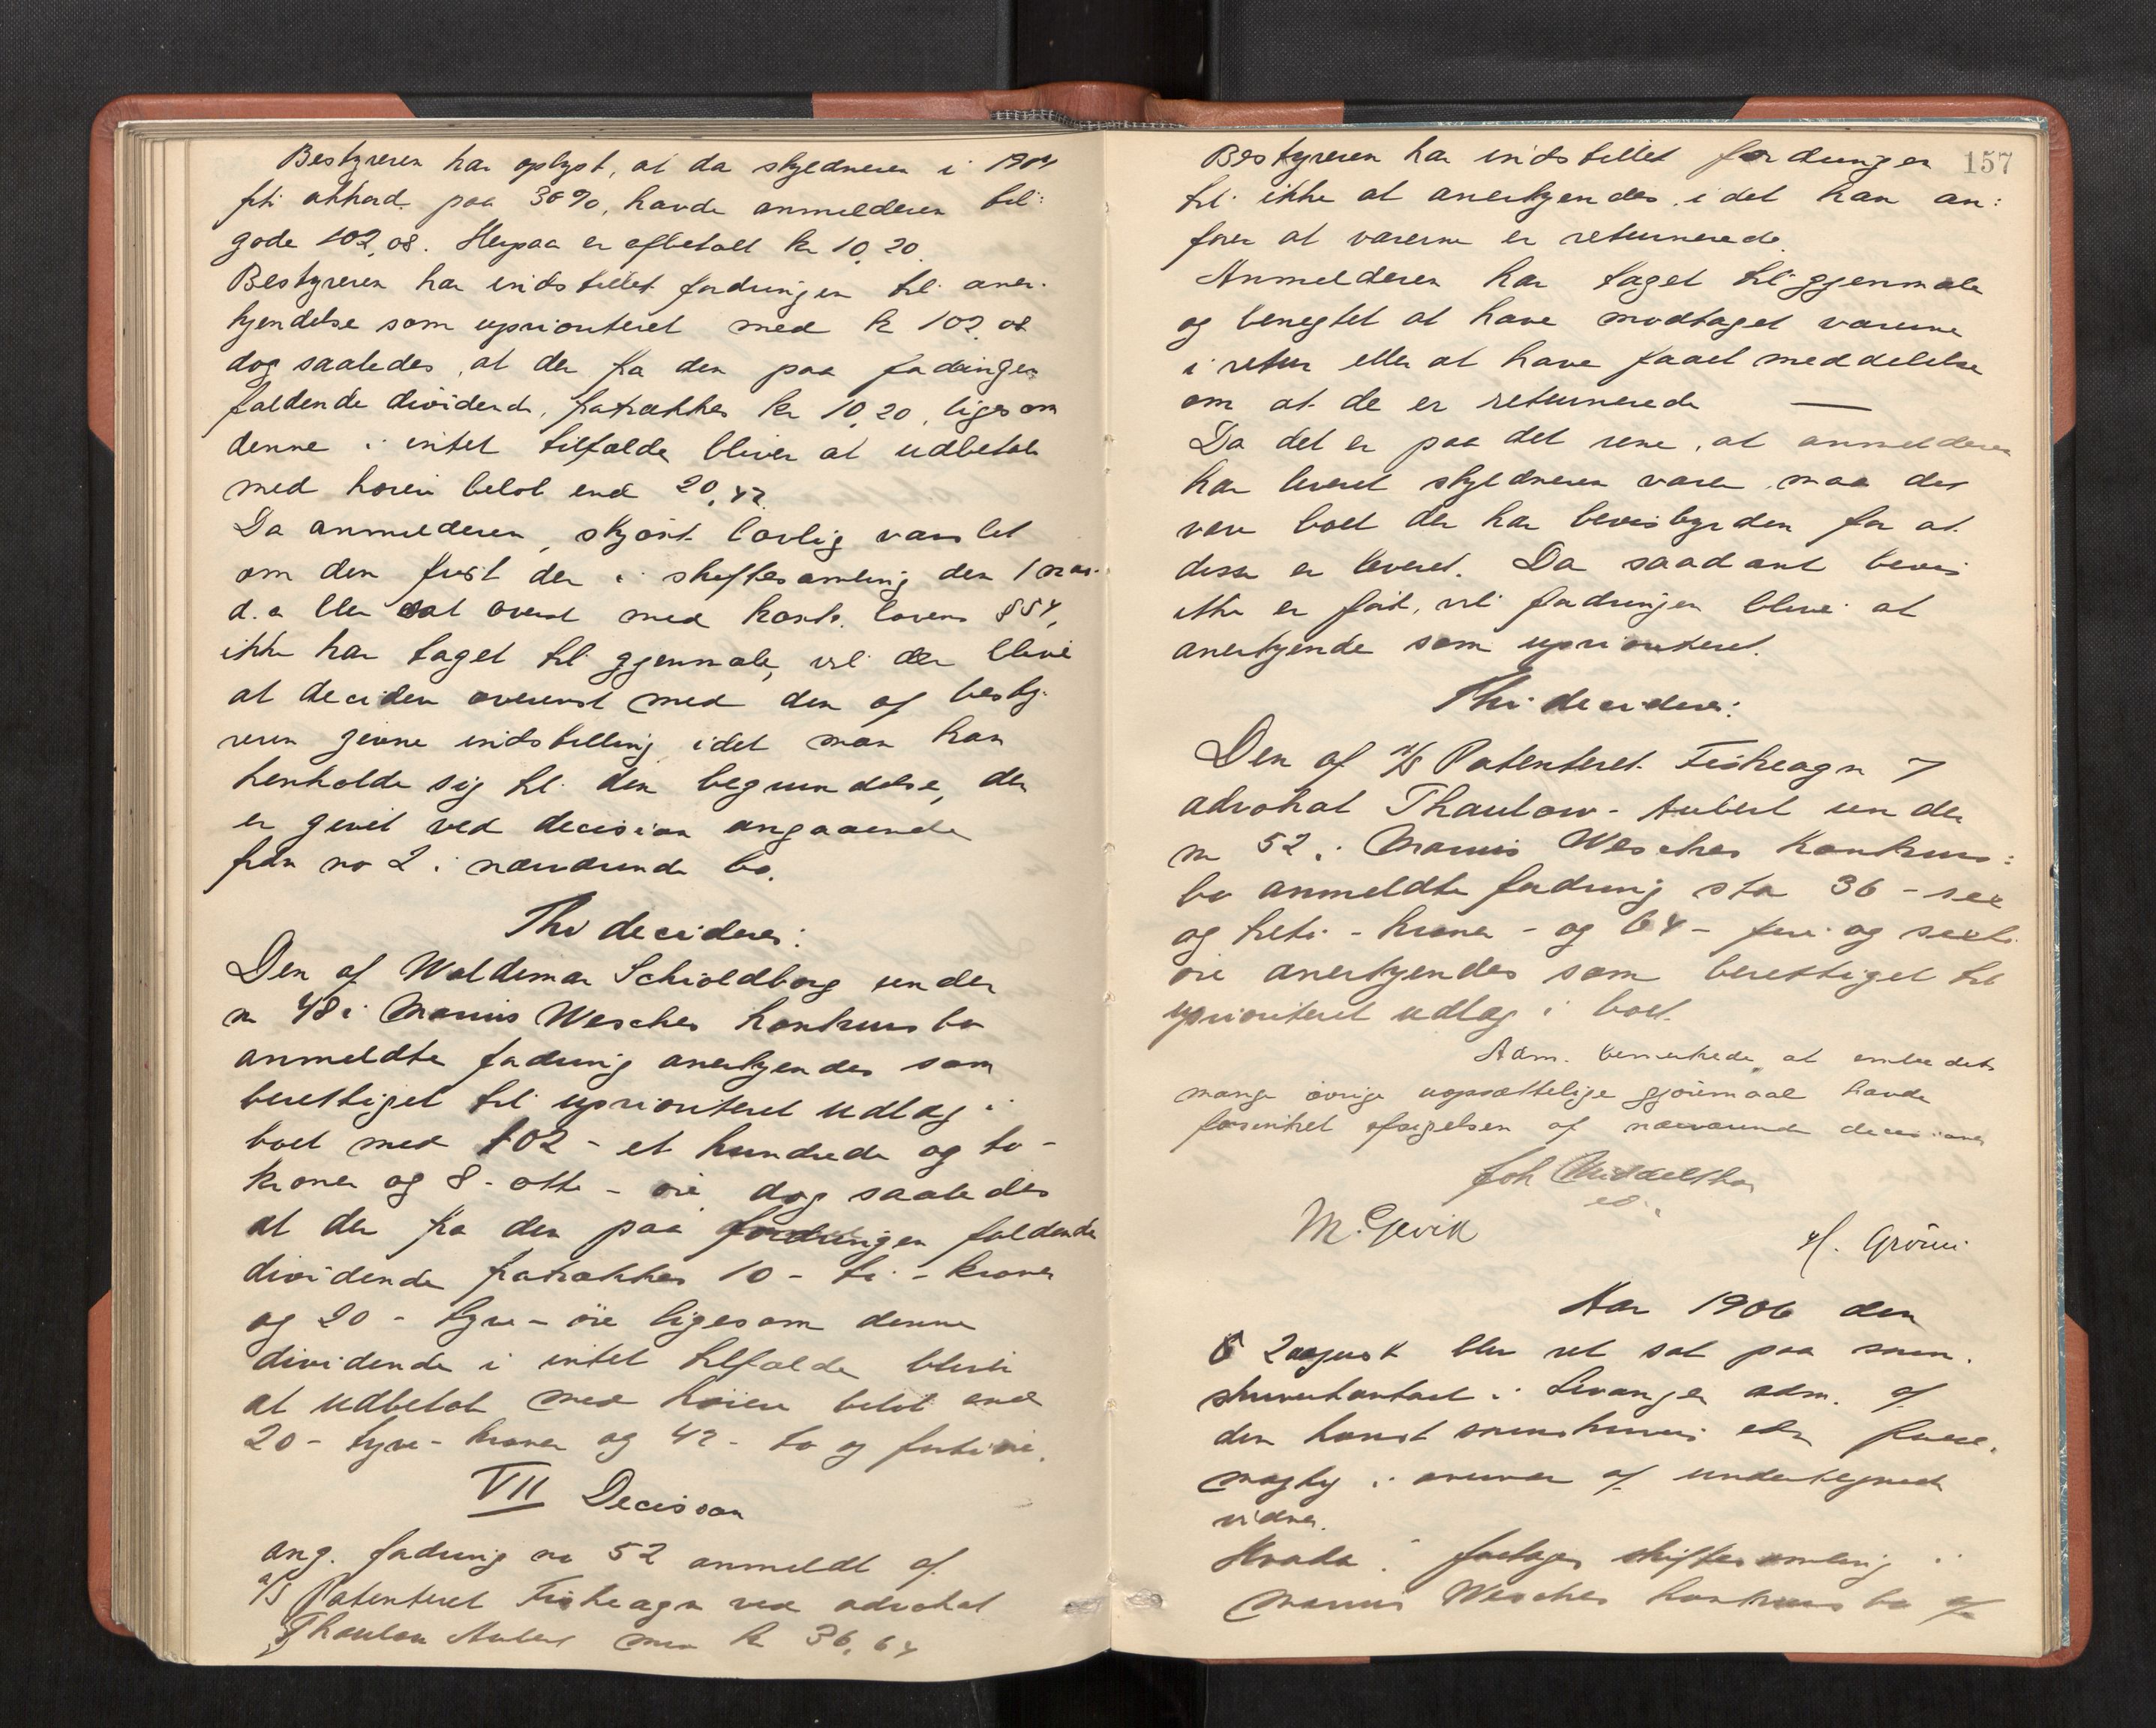 Bestyreren har oplyst, at da skyldneren i 1904
fik akkord paa 30%, havde anmelderen til-
gode 102,08. Herpaa er afbetalt kr 10,20.
Bestyreren har indstillet fordringen til aner-
kjendelse som uprioriteret med kr 102,08
dog saaledes, at der fra den paa fordringen
faldende dividende, fratrækkes kr 10,20, ligesom
denne i intet tilfælde bliver at udbetale
med høiere beløb end 20,42.
Da anmelderen, skjønt lovlig varslet
om den frist der i skiftesamling den 1 mai
d.a blev sat overenst med konk. lovens §54,
ikke har taget til gjenmæle, vil der blive
at decidere overenst med den af besty-
reren givne indstilling idet man kan
henholde sig til den begrundelse, der
er givet ved decision angaaende
frdn no 2 i nærværende bo.
Thi decideres:
Den af Waldemar Schioldborg under
no 48 i Marius Wesches konkursbo
anmeldte fordring anerkjendes som
berettiget til uprioriteret udlæg i
boet med 102 - et hundrede og to -
kroner og 8 - otte - øre dog saaledes
at der fra den paa fordringen faldende
dividende fratrækkes 10 - ti - kroner
og 20 - tyve - øre ligesom denne
dividende i intet tilfælde bliver
at udbetale med høiere beløb end
20 - tyve - kroner og 42 - to og førti øre.
VII Decision
ang. fordring no 52 anmeldt af
A/S Patenteret Fiskeagn ved advokat
Thaulow Aubert med kr 36,64
157
Bestyreren har indstillet fordringen
til ikke at anerkjendes, idet han an-
fører at varerne er returnerede.
Anmelderen har taget til gjenmæle
og benegtet at have modtaget varerne
i retur eller at have faaet meddelelse
om at de er returnerede —
Da det er paa det rene, at anmelderen
har leveret skyldneren varer maa det
være boet der har bevisbyrden for at
disse er leveret. Da saadant bevis
ikke er ført, vil fordringen blive at
anerkjende som uprioriteret.
Thi decideres:
Den af A/S Patenteret Fiskeagn v
advokat Thaulow-Aubert under
no 52 i Marius Wesches konkurs-
bo anmeldte fordring stor 36 - sex
og treti - kroner - og 64 - fire og sexti
øre anerkjendes som berettiget til
uprioriteret udlæg i boet.
Adm. bemerkede, at embedets
mange øvrige uopsættelige gjøremaal havde
forsinket afsigelsen af nærværende decisioner
Joh Middelthon
M. Gevik H. Grönn
Aar 1906 den
2 august blev ret sat paa soren-
skriverkontoret i Levanger adm. af
den konst sorenskriver efter fuld-
magt i overvær af undertegnede
vidner.
Hvorda: foretoges skiftesamling i
Marius Wesches konkursbo